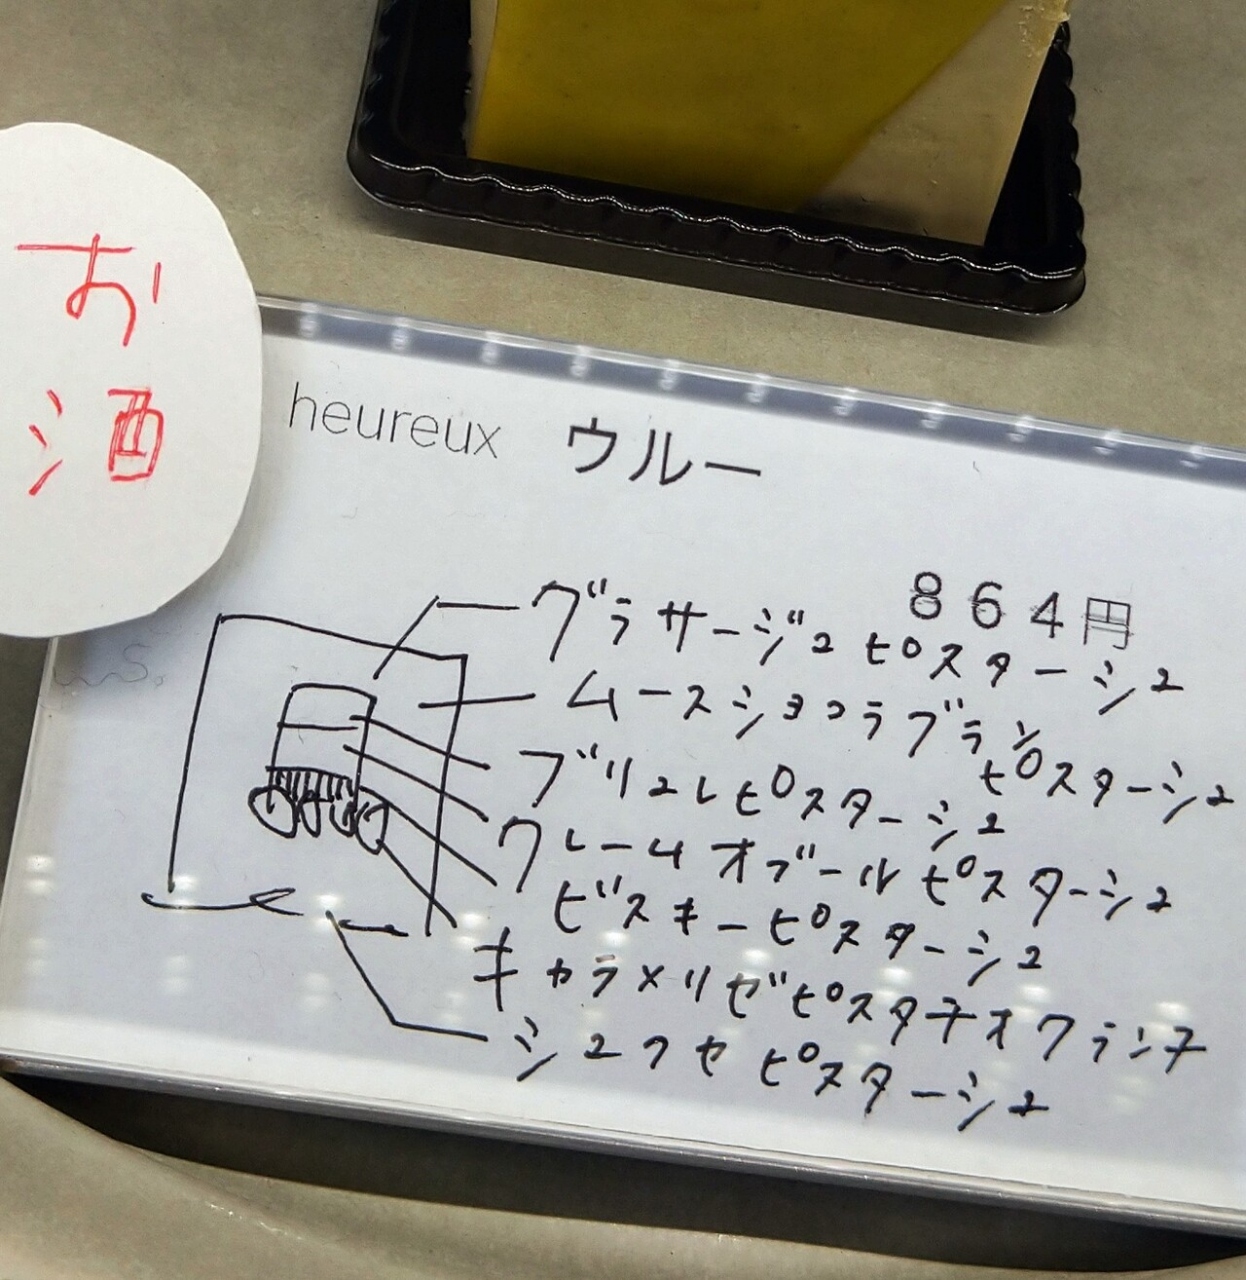 お
酒
heureux ウルー
864円
グラサージュピスターシュ
ムースショコラブラン
ピスターシュ
ブリュレピスターシュ
クレームオブールピスターシュ
ビスキーピスターシュ
キャラメリゼピスタチオクランチ
シュクセピスターシュ